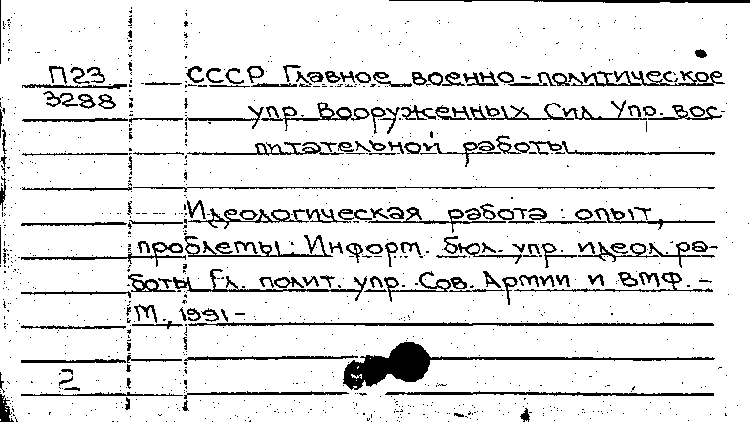 П23 СССР Главное военно-политическое
3288 упр. Вооруженных Сил. Упр. вос
питательной работы.
Идеологическая работа: опыт,
проблемы: Информ. бюл. упр. идеол. ра-
боты Гл. полит. упр. Сов. Армии и ВМФ. -
М., 1991-
2